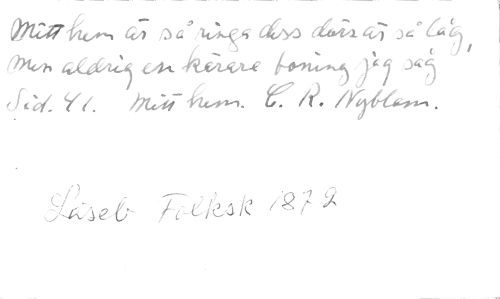 Mitt hem är så ringa dess dörr är så låg,
men aldrig en kärare boning jag såg
Sid. 41. Mitt hem. C. R. Nyblom.
Läseb Folksk 1872